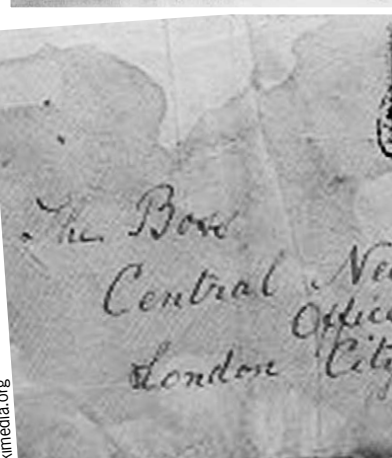 The Boss
Central Ne
Office
London City
kimedia.org